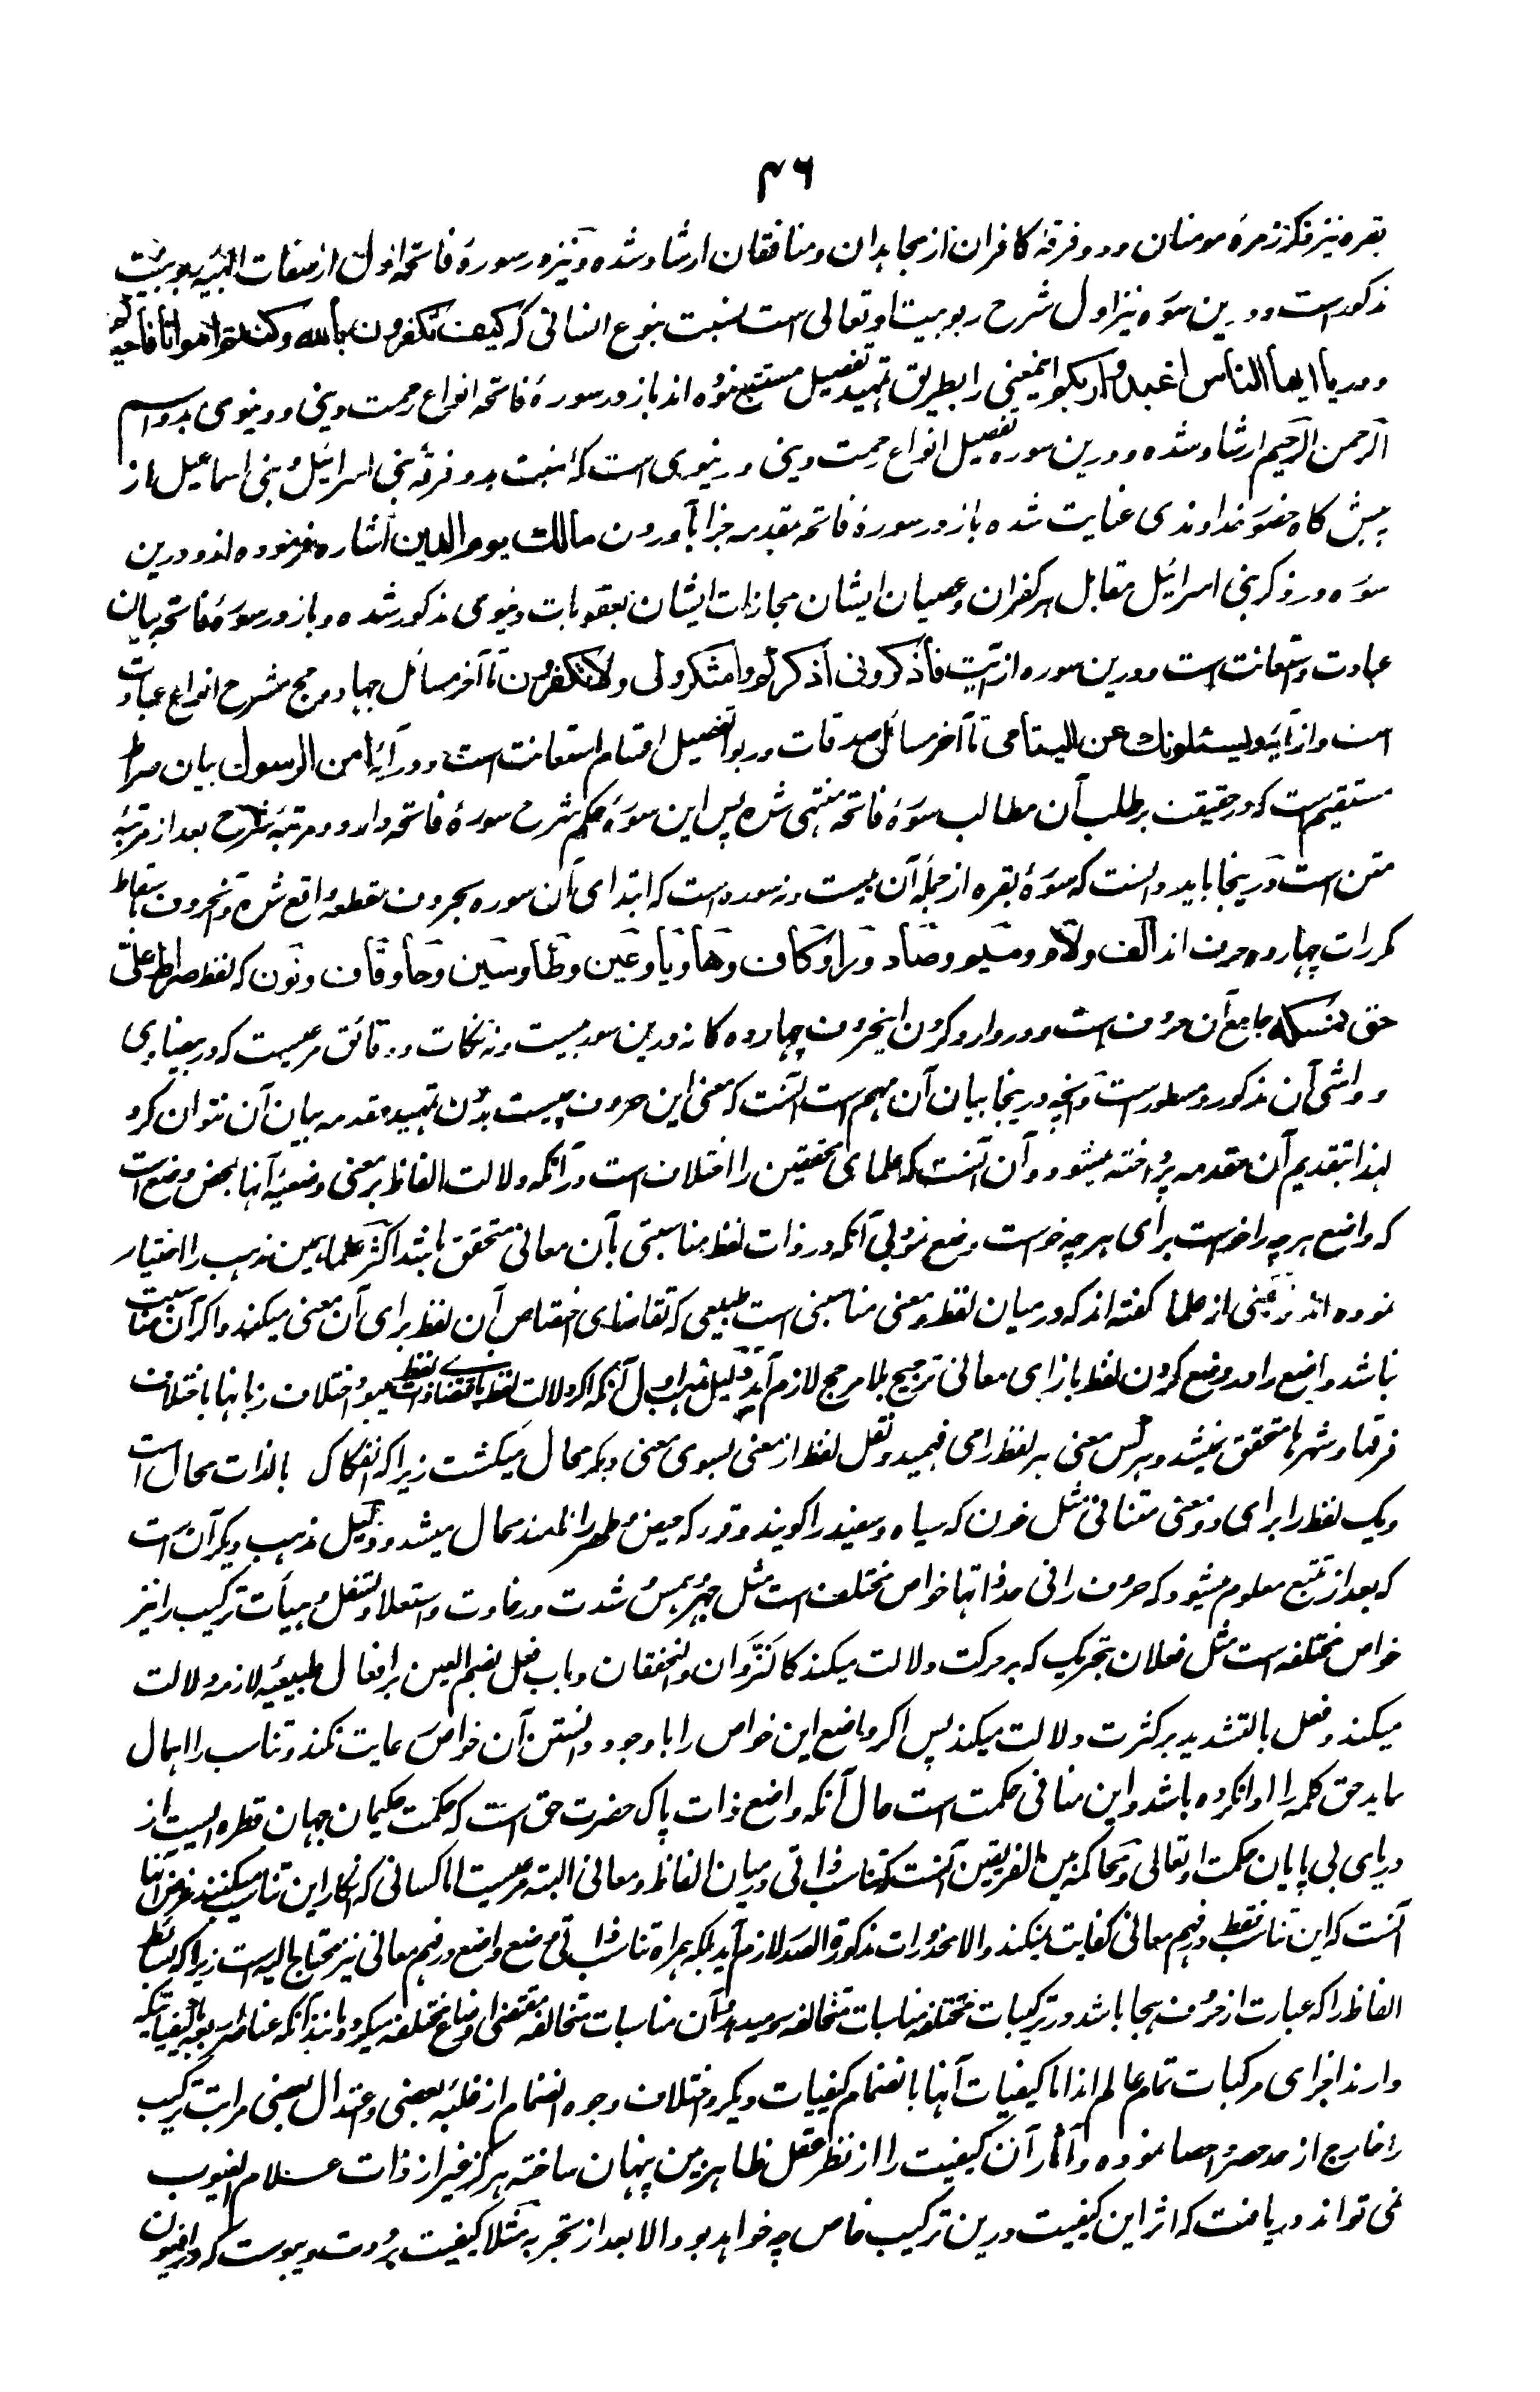 ۴۶
بقره نیز ذکر زمره مومنان و دو فرقهٔ کافران از مجاهدان و منافقان ارشاد شده و نیز در سورهٔ فاتحه اول از صفات الٰهیه ربوبیت
مذکور است و درین سوره نیز اول شرح ربوبیت او تعالی است بنسبت بنوع انسانی که کیف تکفرون بالله وکنتم امواتا فأحیاکم
و در یا ایها الناس اعبدوا ربکم اینمعنی را بطریق تمهید تفصیل مستتبع نموده اند باز در سورهٔ فاتحه انواع رحمت دینی و دنیوی بدو اسم
الرحمن الرحیم ارشاد شده و درین سوره تفصیل انواع رحمت دینی و دنیوی است که بنسبت بدو فرقهٔ بنی اسرائیل و بنی اسماعیل از
پیش کاه حضور خداوندی عنایت شده باز در سورهٔ فاتحه مقدمه جزا بآوردن مالك یوم الدین اشاره فرموده اند و درین
سوره در ذکر بنی اسرائیل مقابل هر کفران و عصیان ایشان مجازات ایشان بعقوبات دنیوی مذکور شده و باز در سورهٔ فاتحه بیان
عبادت و استعانت است و درین سوره از آیت فأذکرونی أذکرکم واشکروا لی ولا تکفرون تا آخر مسائل جهاد و حج مشرح انواع عبادت
است و از آیه ویسئلونك عن الیتامی تا آخر مسائل صدقات و ربوا تفصیل اقسام استعانت است و در آیهٔ امن الرسول بیان صراط
مستقیم است که در حقیقت بر طلب آن مطالب سورهٔ فاتحه منتهی شده پس این سوره حکم شرح سورهٔ فاتحه دارد و مرتبهٔ شرح بعد از مرتبهٔ
متن است و درینجا باید دانست که سورهٔ بقره از جملهٔ آن بیست و نه سوره است که ابتدای آن سوره بحروف مقطعه واقع شده و آنحروف باسقاط
مکررات چهارده حرف اند الف ولام ومیم وصاد ورا وکاف وها ویا وعین وطا وسین وحا وقاف ونون که لفظ صراط علیّ
حق نمسکه جامع آن حروف است و در وارد کردن اینحروف چهارده کانه درین سور بیست و نه نکات و دقائق مرعیست که در بیضاوی
و حواشی آن مذکور و مسطور است و آنچه درینجا بیان آن مهم است آنست که معنی این حروف چیست بدون تمهید مقدمه بیان آن نتوان کرد
لهذا بتقدیم آن مقدمه پرداخته میشود و آن آنست که علمای محققین را اختلاف است در آنکه دلالت الفاظ بر معنی وضعیهٔ آنها بمحض وضع است
که واضع هر چه را خواست برای هر چه خواست وضع نمود بی آنکه در ذات لفظ مناسبتی بآن معانی متحقق باشد اکثر علما همین مذهب را اختیار
نموده اند و بعضی از علما گفته اند که درمیان لفظ و معنی مناسبتی است طبیعی که تقاضای اختصاص آن لفظ برای آن معنی میکند و اکر آن مناسبت
نباشد واضع را در وضع کردن لفظ بازای معانی ترجیح بلا مرجح لازم آید و دلیل مذهب اول آنکه اکر دلالت لفظ باقتضای ذات لفظ میبود اختلاف زبانها باختلاف
فرقها و شهرها متحقق نمیشد و هرکس معنی هر لفظ را می فهمید و نقل لفظ از معنی بسوی معنی دیکر محال میکشت زیرا که انفکاک بالذات محال است
و یک لفظ را برای دو معنی متنافی مثل جون که سیاه و سفید را کویند و قرء که حیض و طهر را نامند محال میشد و دلیل مذهب دیکر آن است
که بعد از تتبع معلوم میشود که حروف را فی حد ذاتها خواص مختلف است مثل جهر و همس و شدت و رخاوت و استعلا و تسفل و هیأت ترکیب را نیز
خواص مختلفه است مثل فعلان بتحریک که بر حرکت دلالت میکند کالنزوان والخفقان و باب فعل بضم العین بر افعال طبیعیهٔ لازمه دلالت
میکند و فعل بالتشدید بر کثرت دلالت میکند پس اکر واضع این خواص را با وجود دانستن آن خواص رعایت نکند و تناسب را اهمال
نماید حق کلمه را ادا نکرده باشد و این منافی حکمت است حال آنکه واضع ذات پاک حضرت حق است که حکمت حکیمان جهان قطره ایست از
دریای بی پایان حکمت او تعالی و محاکمه بین الفریقین آنست که تناسب ذاتی درمیان الفاظ و معانی البته مرعیست اما کسانی که انکار این تناسب میکنند غرض آنها
آنست که این تناسب فقط در فهم معانی کفایت نمیکند والا محذورات مذکورة الصدر لازم آید بلکه همراه تناسب ذاتی وضع واضع در فهم معانی نیز محتاج الیه است زیرا که بسائط
الفاظ را که عبارت از حروف هجا باشد در ترکیبات مختلفه مناسبات متخالفه بهم میرسد و آن مناسبات متخالفه مقتضی اوضاع مختلفه میکردد مانند آنکه عناصر اربعه با کیفیاتیکه
دارند اجزای مرکبات تمام عالم اند اما کیفیات آنها بانضمام کیفیات دیکر و اختلاف وجوه انضمام از غلبه بعضی و اعتدال بعضی مراتب ترکیب
را خارج از حد حصر و احصا نموده و آثار آن کیفیت را از نظر عقل ظاهر بین پنهان ساخته هرکز غیر از ذات علام الغیوب
نمی تواند دریافت که اثر این کیفیت درین ترکیب خاص چه خواهد بود الا بعد از تجربه مثلا کیفیت برودت و یبوست که در افیون